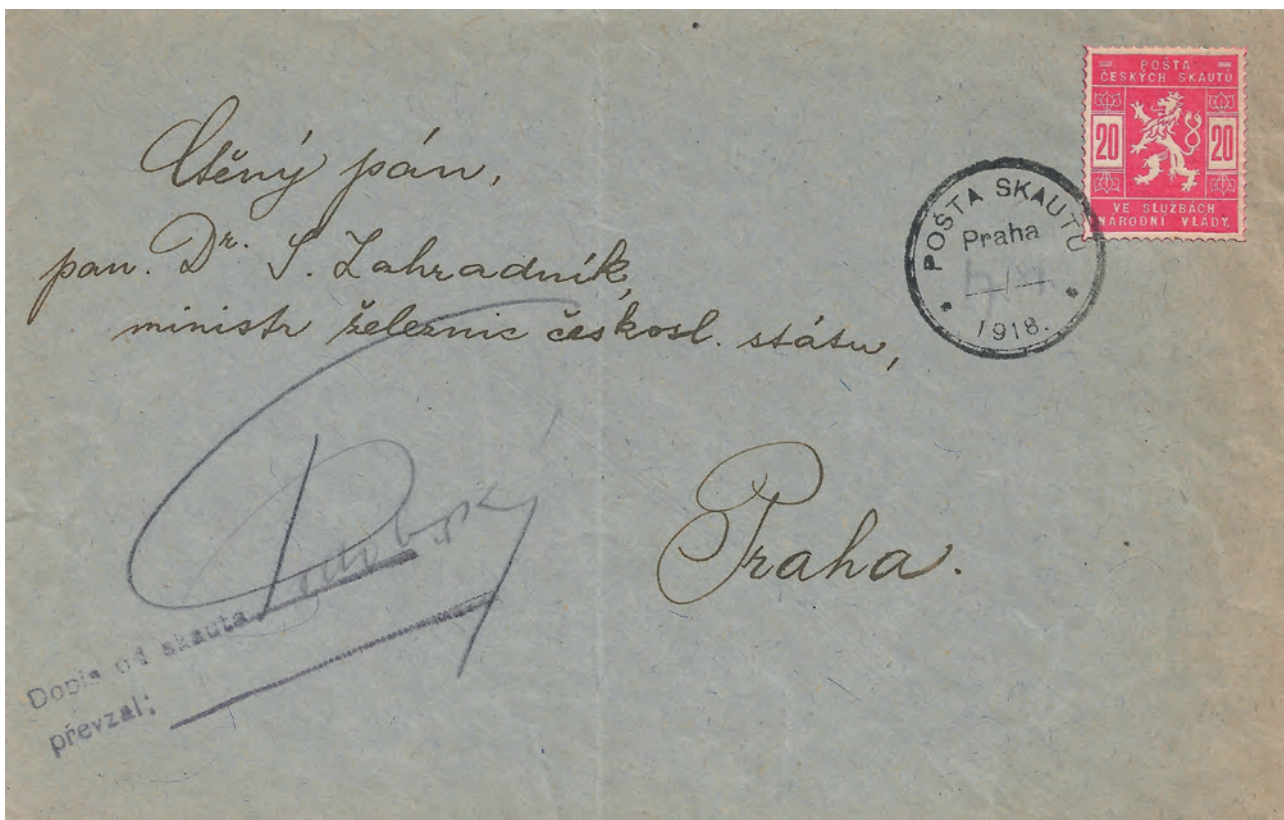 POŠTA
ČESKÝCH SKAUTŮ
20 20
VE SLUZBÁCH
NÁRODNÍ VLÁDY.
POŠTA SKAUTŮ
Praha
1918.
Ctěný pán,
pan. Dr. I. Zahradník,
ministr železnic českosl. státu,
Praha.
Dopis od skauta
převzal: